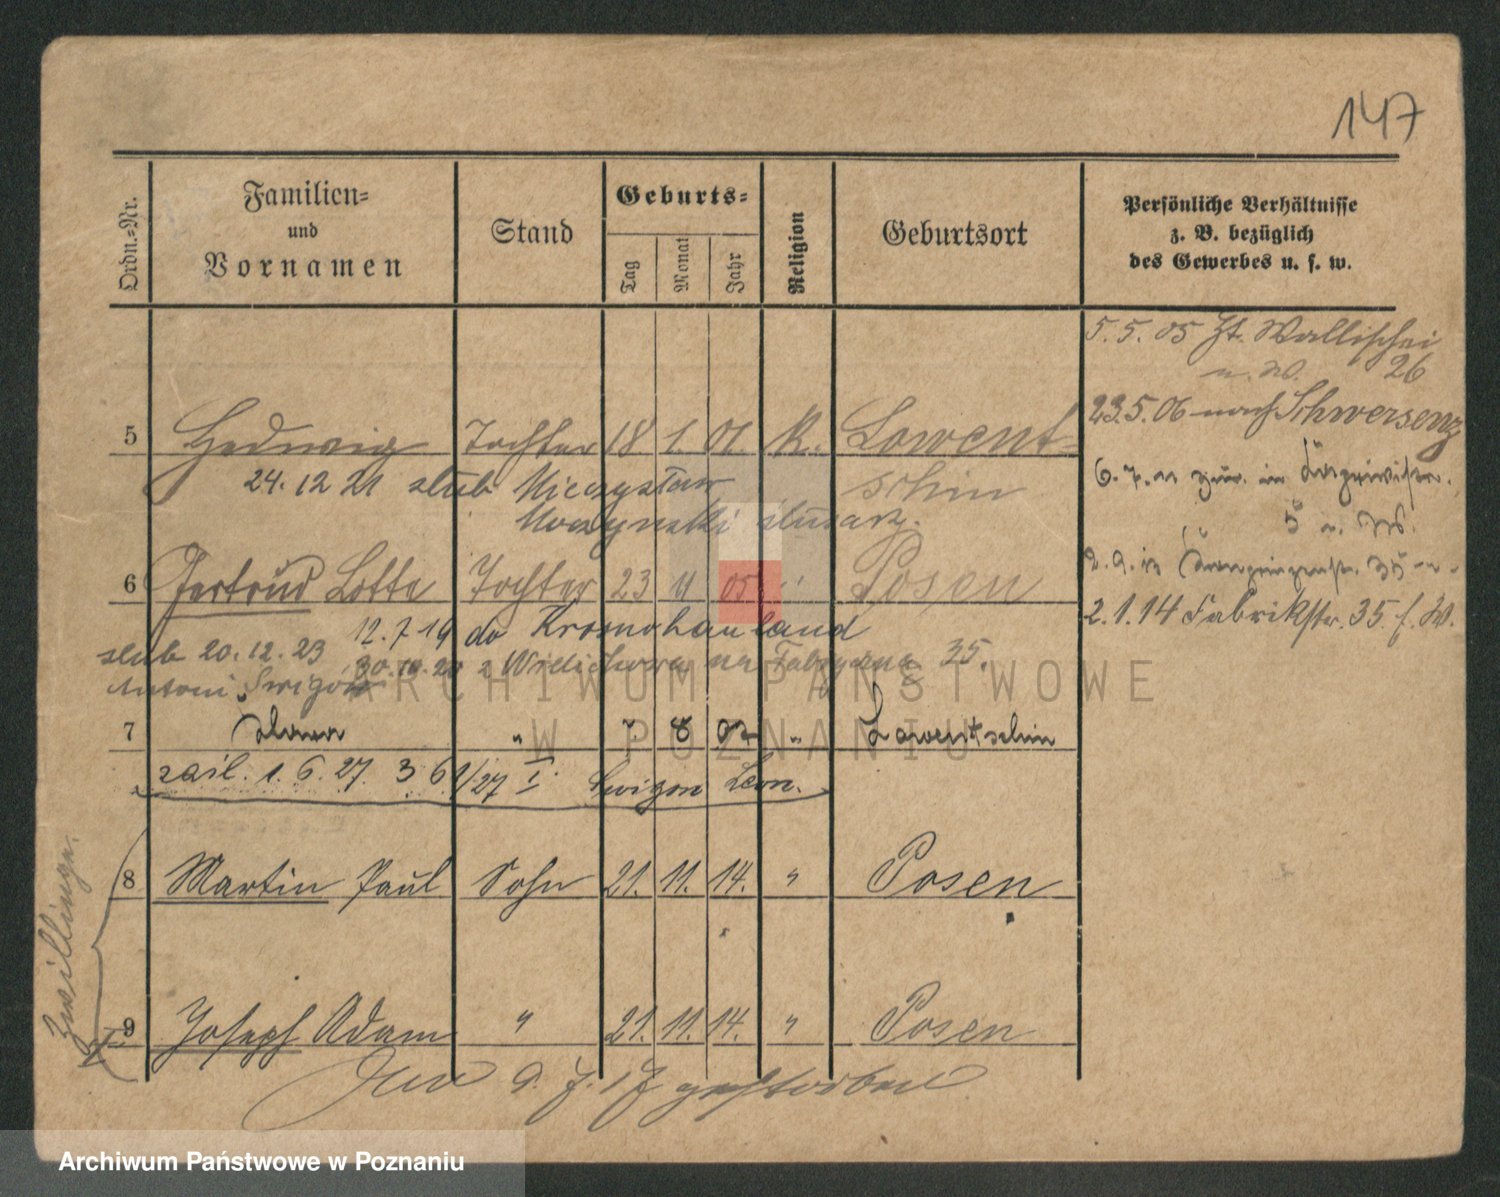 147
Ordn.-Nr.
Familien-
und
Vornamen
Stand
Geburts-
Tag
Monat
Jahr
Religion
Geburtsort
Persönliche Verhältnisse
z. B. bezüglich
des Gewerbes u. s. w.
5.5.05 Zt. Wallischei
26
23.5.06 nach Schwersenz
5 Hedwig Tochter 18. 1. 01. K. Lowent-
schin
24.12 21 slub Mieczysław
Moczynski slusarz.
6.7.11 zur. in
5 u. W.
6 Gertrud Lotte Tochter 23 11 05 " Posen
2.9.12 35
2.1.14 Fabrikstr. 35. f. W.
12.7.19 do Kromohauland
slub 20.12.23 30.10.20 z na Fabryczną 35.
Antoni Swigon
7 " 7 8 02 " Lowentschin
zasl. 1.6.27. 361/27 I. Swigon Leon.
Zwillinge.
8 Martin Paul Sohn 21. 11. 14. " Posen
9 Joseph Adam " 21. 11. 14. " Posen
9.7.17 gestorben
ARCHIWUM PAŃSTWOWE
W POZNANIU
Archiwum Państwowe w Poznaniu